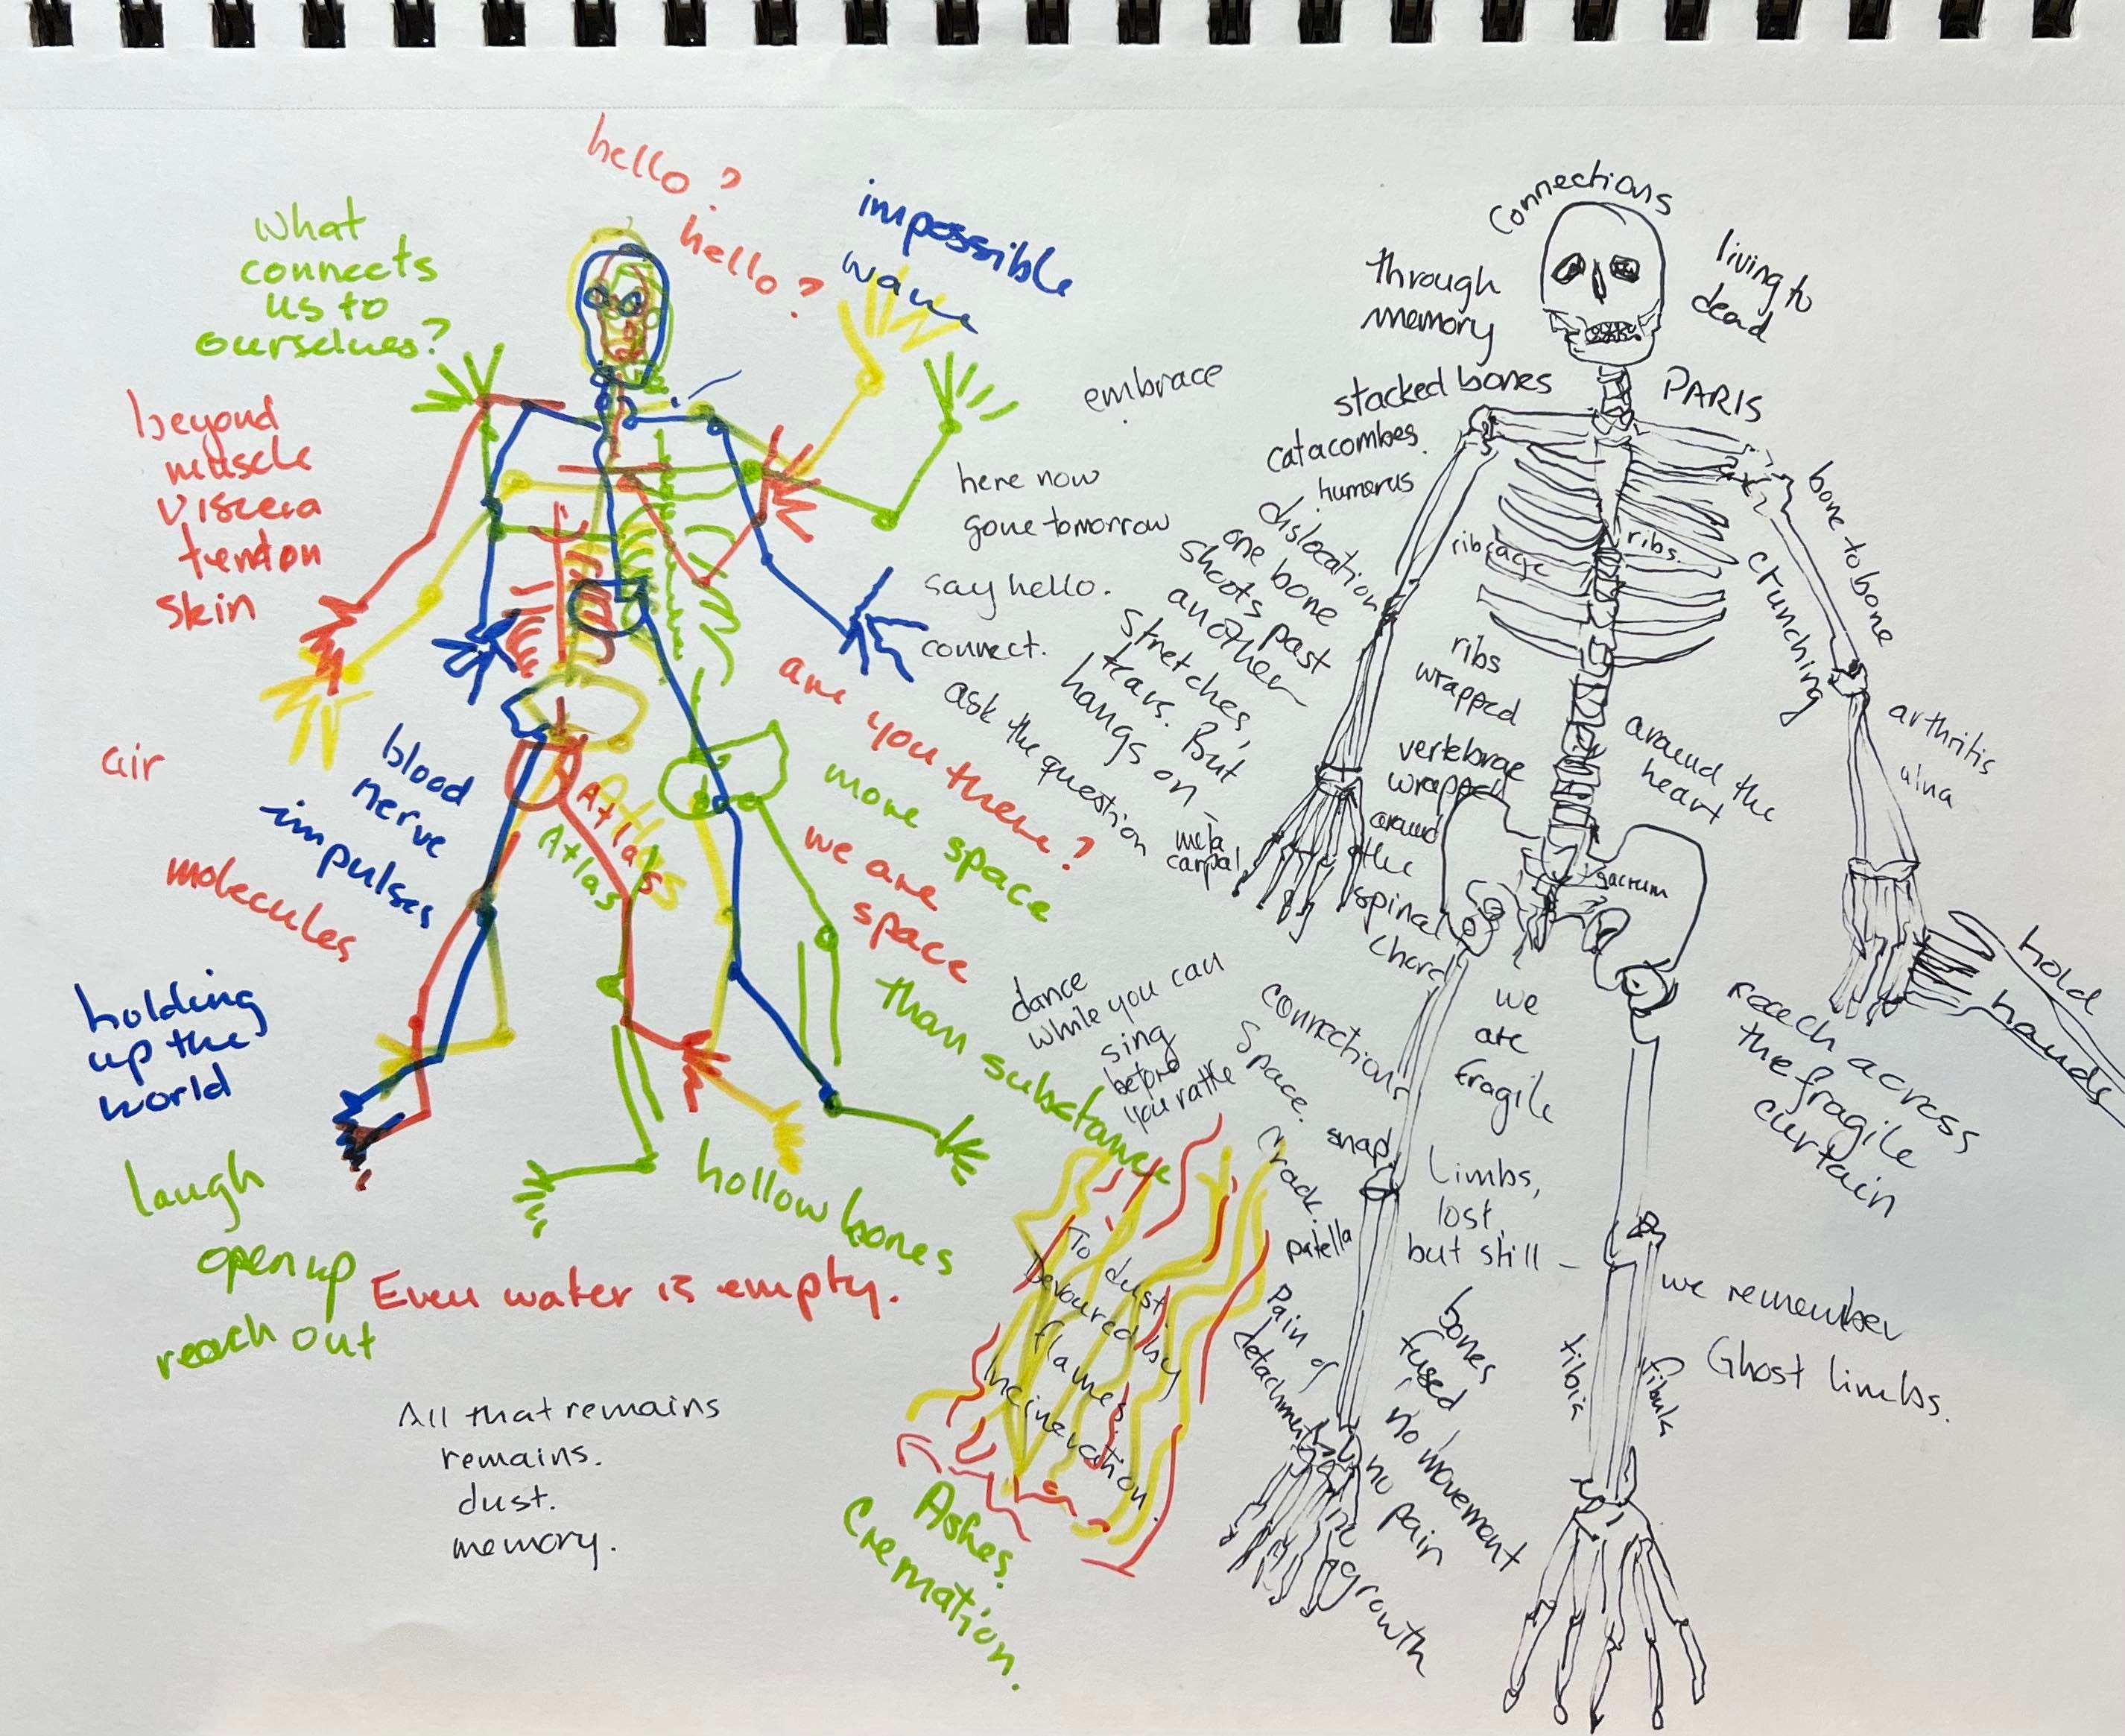 hello?
hello?
impossible
wave
what
connects
us to
ourselves?
beyond
muscle
viscera
tendon
skin
air
blood
nerve
impulses
molecules
holding
up the
world
laugh
open up
reach out
Atlas
Atlas
Atlas
are you there?
we are
space
more space
than substance
hollow bones
Even water is empty.
All that remains
remains.
dust.
memory.
embrace
here now
gone tomorrow
say hello.
connect.
ask the question
dance
while you can
sing
before
you rattle
To dust.
Devoured by
flames
Incineration.
Ashes.
Cremation.
Connections
through
memory
living to
dead
stacked bones
PARIS
catacombes
humerus
dislocation
one bone
shoots past
another
stretches,
tears. But
hangs on –
meta
carpal
ribcage
ribs.
bone to bone
crunching
arthritis
ulna
ribs
wrapped
around the
heart
vertebrae
wrapped
around
the
spinal
chord
sacrum
hold
hands
reach across
the fragile
curtain
connections
Space.
snap
crack.
patella
we
are
fragile
Limbs,
lost,
but still –
we remember
Ghost limbs.
tibia
fibula
Pain of
detachment
bones
fused
no movement
no pain
no
growth